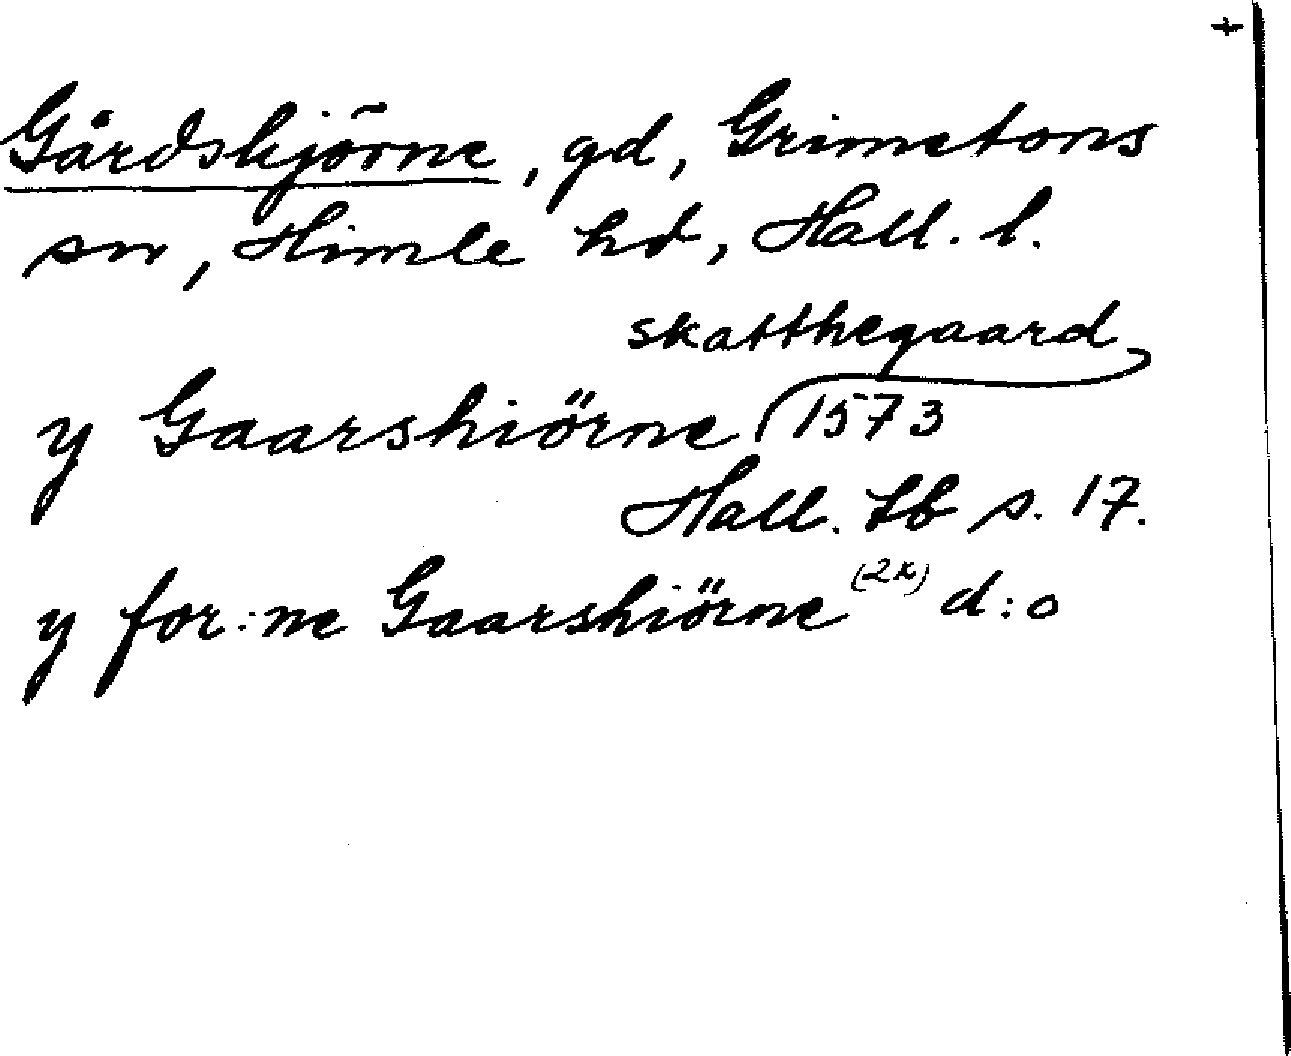 +
Gårdshjörne, gd, Grimetons
sn, Himle hd, Hall. l.
skatthegaard
y Gaarshiörne 1573
Hall. Lb s. 17.
y for:ne Gaarshiörne (2x) d:o